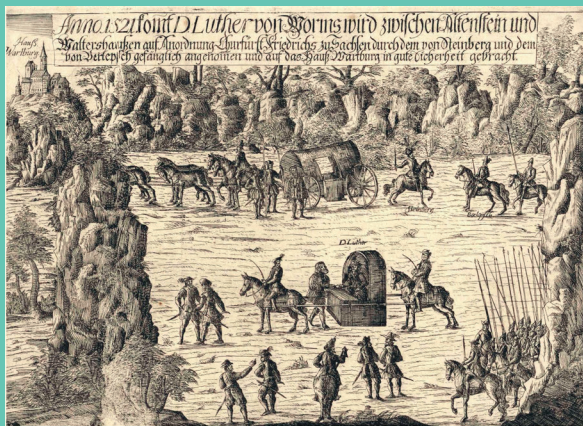 Anno.1521 komt D Luther von Worms wird zwischen Altenstein und
Waltershausen auf Anordnung Churfürst Friedrichs zu Sachsen durch dem von Steinberg und dem
von Berlepsch gefänglich angenommen und auf das Hauß Wartburg in gute Sicherheit gebracht.
Hauß
Wartburg
D Luther